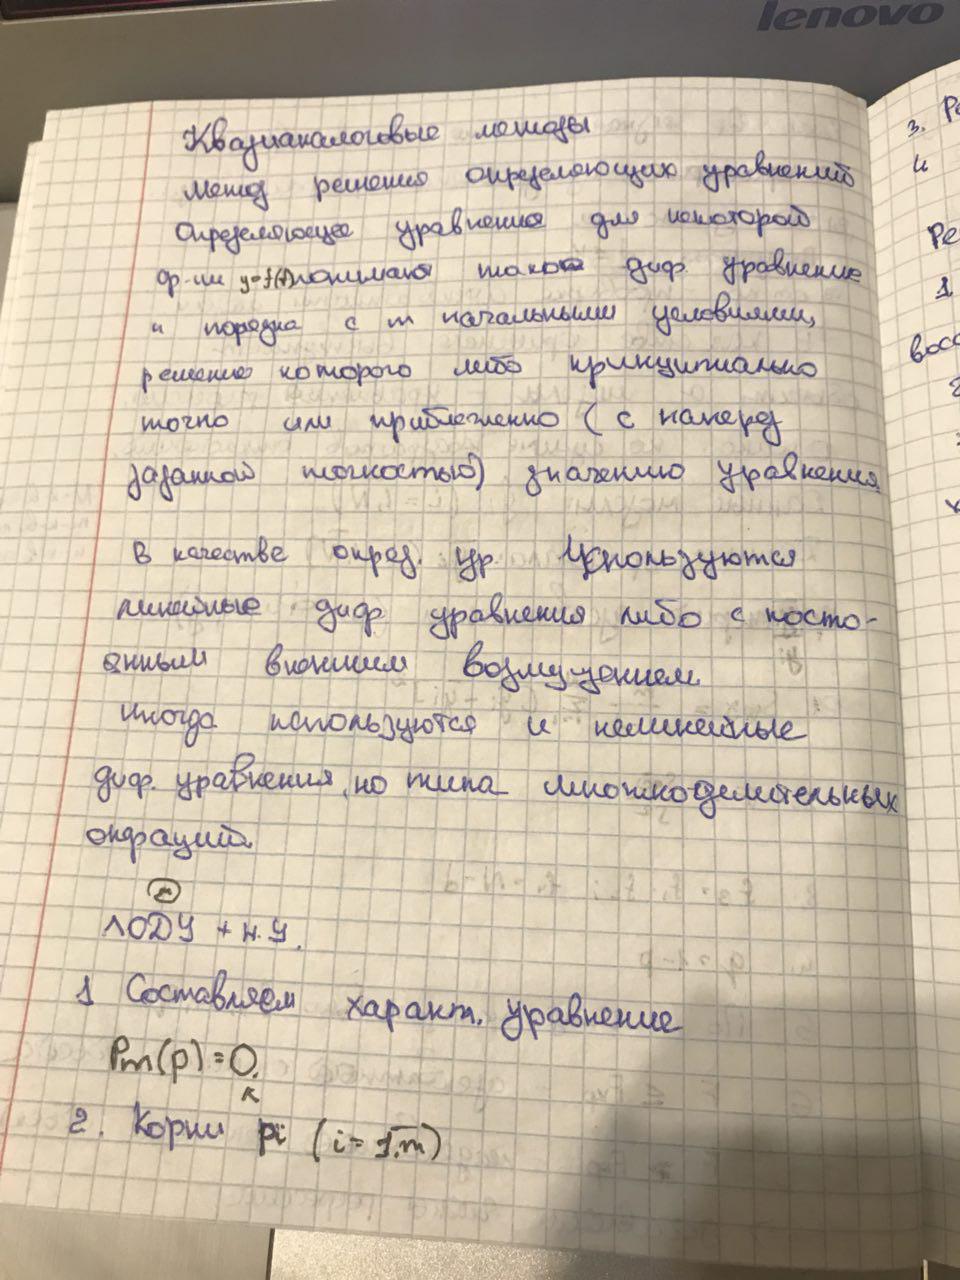 lenovo
Квазианалоговые методы
Метод решения определяющих уравнений
Определяющее уравнение для некоторой
ф-ии y=f(t) понимают такое диф. уравнение
n порядка с m начальными условиями,
решение которого либо принципиально
точно или приближенно (с наперед
заданной точностью) значению уравнения.
В качестве опред. ур используются
линейные диф уравнения либо с посто-
янным внешним возмущением.
Иногда используются и нелинейные
диф. уравнения, но типа множноделительных
опраций.
m
ЛОДУ + Н.У.
1 Составляем характ. уравнение
Pm(p)=0.
к
2. Корни pi (i=1.m)
3. Ре
и
Ре
1
восс